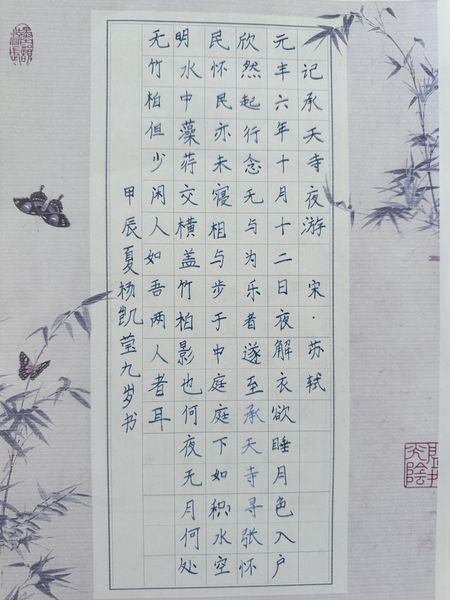 记承天寺夜游 宋·苏轼
元丰六年十月十二日夜解衣欲睡月色入户
欣然起行念无与为乐者遂至承天寺寻张怀
民怀民亦未寝相与步于中庭庭下如积水空
明水中藻荇交横盖竹柏影也何夜无月何处
无竹柏但少闲人如吾两人者耳
甲辰夏杨凯莹九岁书